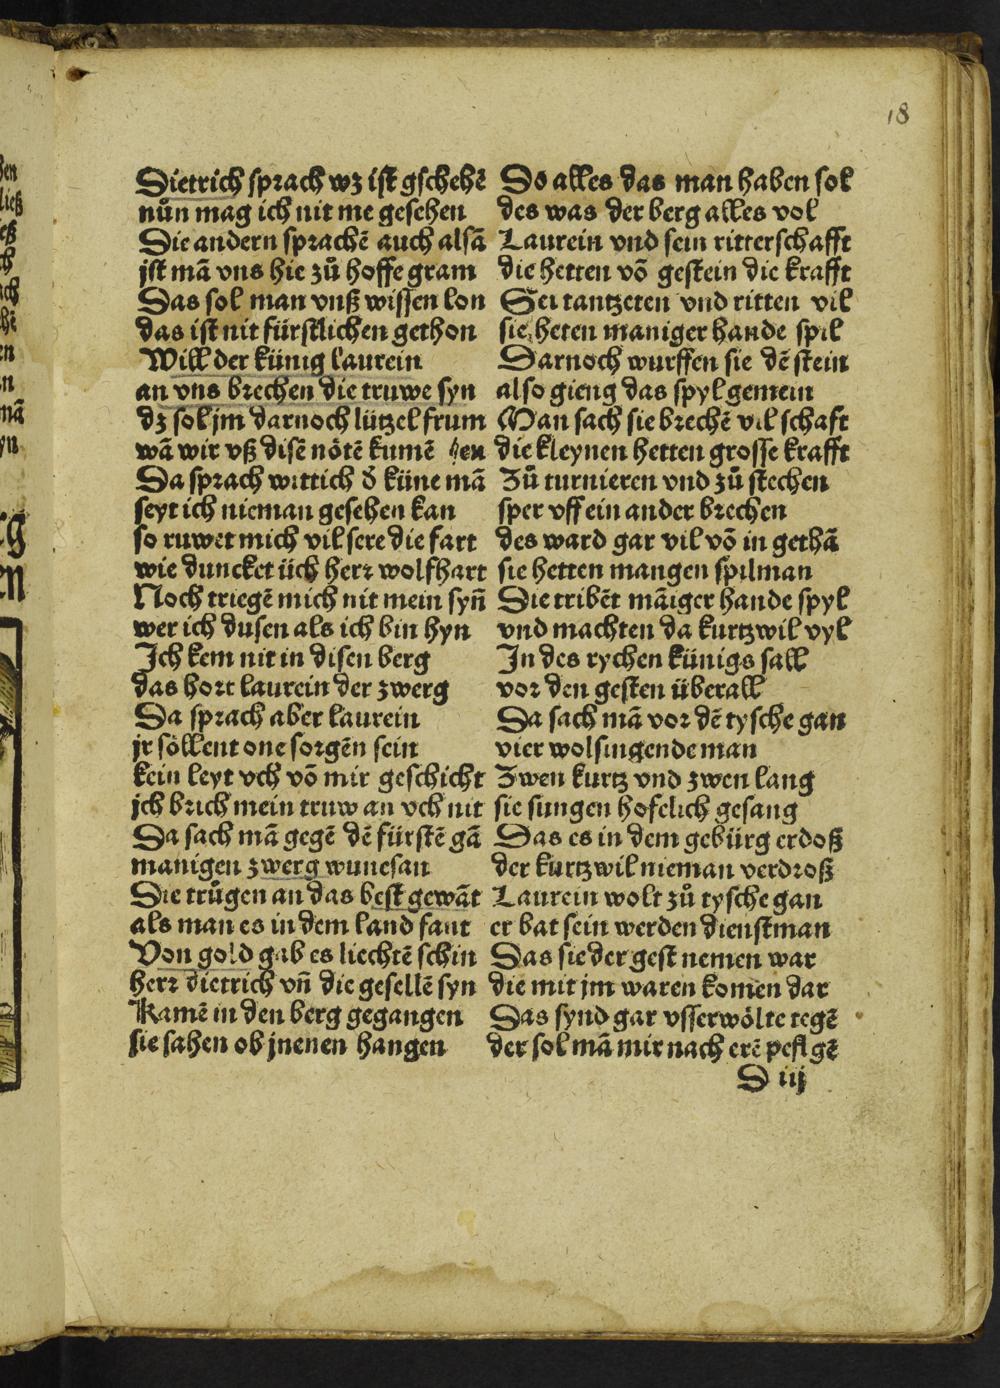 18
Dietrich sprach wz ist gschehē
nůn mag ich nit me gesehen
Die andern sprachē auch alsā
jst mā vns hie zů hoffe gram
Das sol man vnß wissen lon
das ist nit fürstlichen gethon
Will der künig laurein
an vns brechen die truwe syn
dz sol jm darnoch lützel frum
wā wir vß disē nötē kumē
Da sprach wittich d̄ küne mā
seyt ich nieman gesehen kan
so ruwet mich vil sere die fart
wie duncket üch herr wolfhart
Noch triegē mich nit mein syn̄
wer ich dusen als ich bin hyn
Ich kem nit in disen berg
das hort laurein der zwerg
Da sprach aber laurein
jr söllent one sorgēn sein
kein leyt vch vō mir geschicht
jch brich mein truw an vch nit
Da sach mā gegē dē fürstē gā
manigen zwerg wunesan
Die trůgen an das best gewāt
als man es in dem land fant
Von gold gab es liechtē schin
herr dietrich vn̄ die gesellē syn
Kamē in den berg gegangen
sie sahen ob jnenen hangen
So alles das man haben sol
des was der berg alles vol
Laurein vnd sein ritterschafft
die hetten vō gestein die krafft
Sei tantzeten vnd ritten vil
sie heten maniger hande spil
Darnoch wurffen sie dē stein
also gieng das spyl gemein
Man sach sie brechē vil schaft
die kleynen hetten grosse krafft
Zů turnieren vnd zů stechen
sper vff ein ander brechen
des ward gar vil vō in gethā
sie hetten mangen spilman
Die tribēt māiger hande spyl
vnd machten da kurtzwil vyl
In des rychen künigs sall
vor den gesten überall
Da sach mā vor dē tysche gan
vier wolsingende man
Zwen kurtz vnd zwen lang
sie sungen hofelich gesang
Das es in dem gebürg erdoß
der kurtzwil nieman verdroß
Laurein wolt zů tysche gan
er bat sein werden dienstman
Das sie der gest nemen war
die mit jm waren komen dar
Das synd gar vsserwölte tegē
der sol mā mir nach erē peflgē
D iij